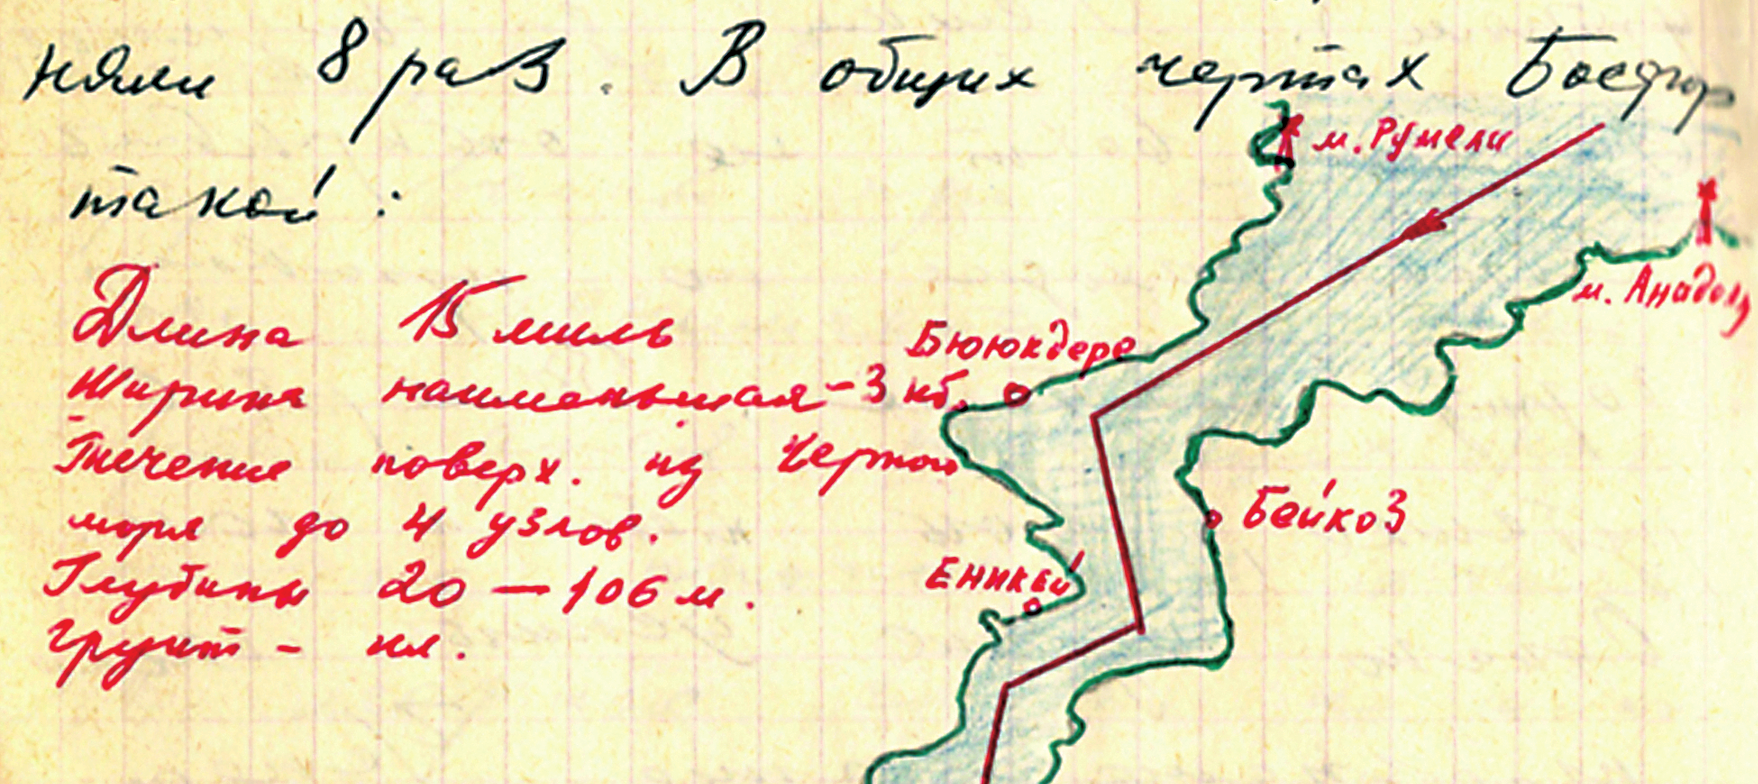 няли 8 раз. В общих чертах Босфор
такой:
м. Румели
м. Анадолу
Длина 15 миль
Бююкдере
Ширина наименьшая - 3 кб.
Течение поверх. из Черного
моря до 4 узлов.
Бейкоз
Еникей
Глубины 20 - 106 м.
Грунт - ил.